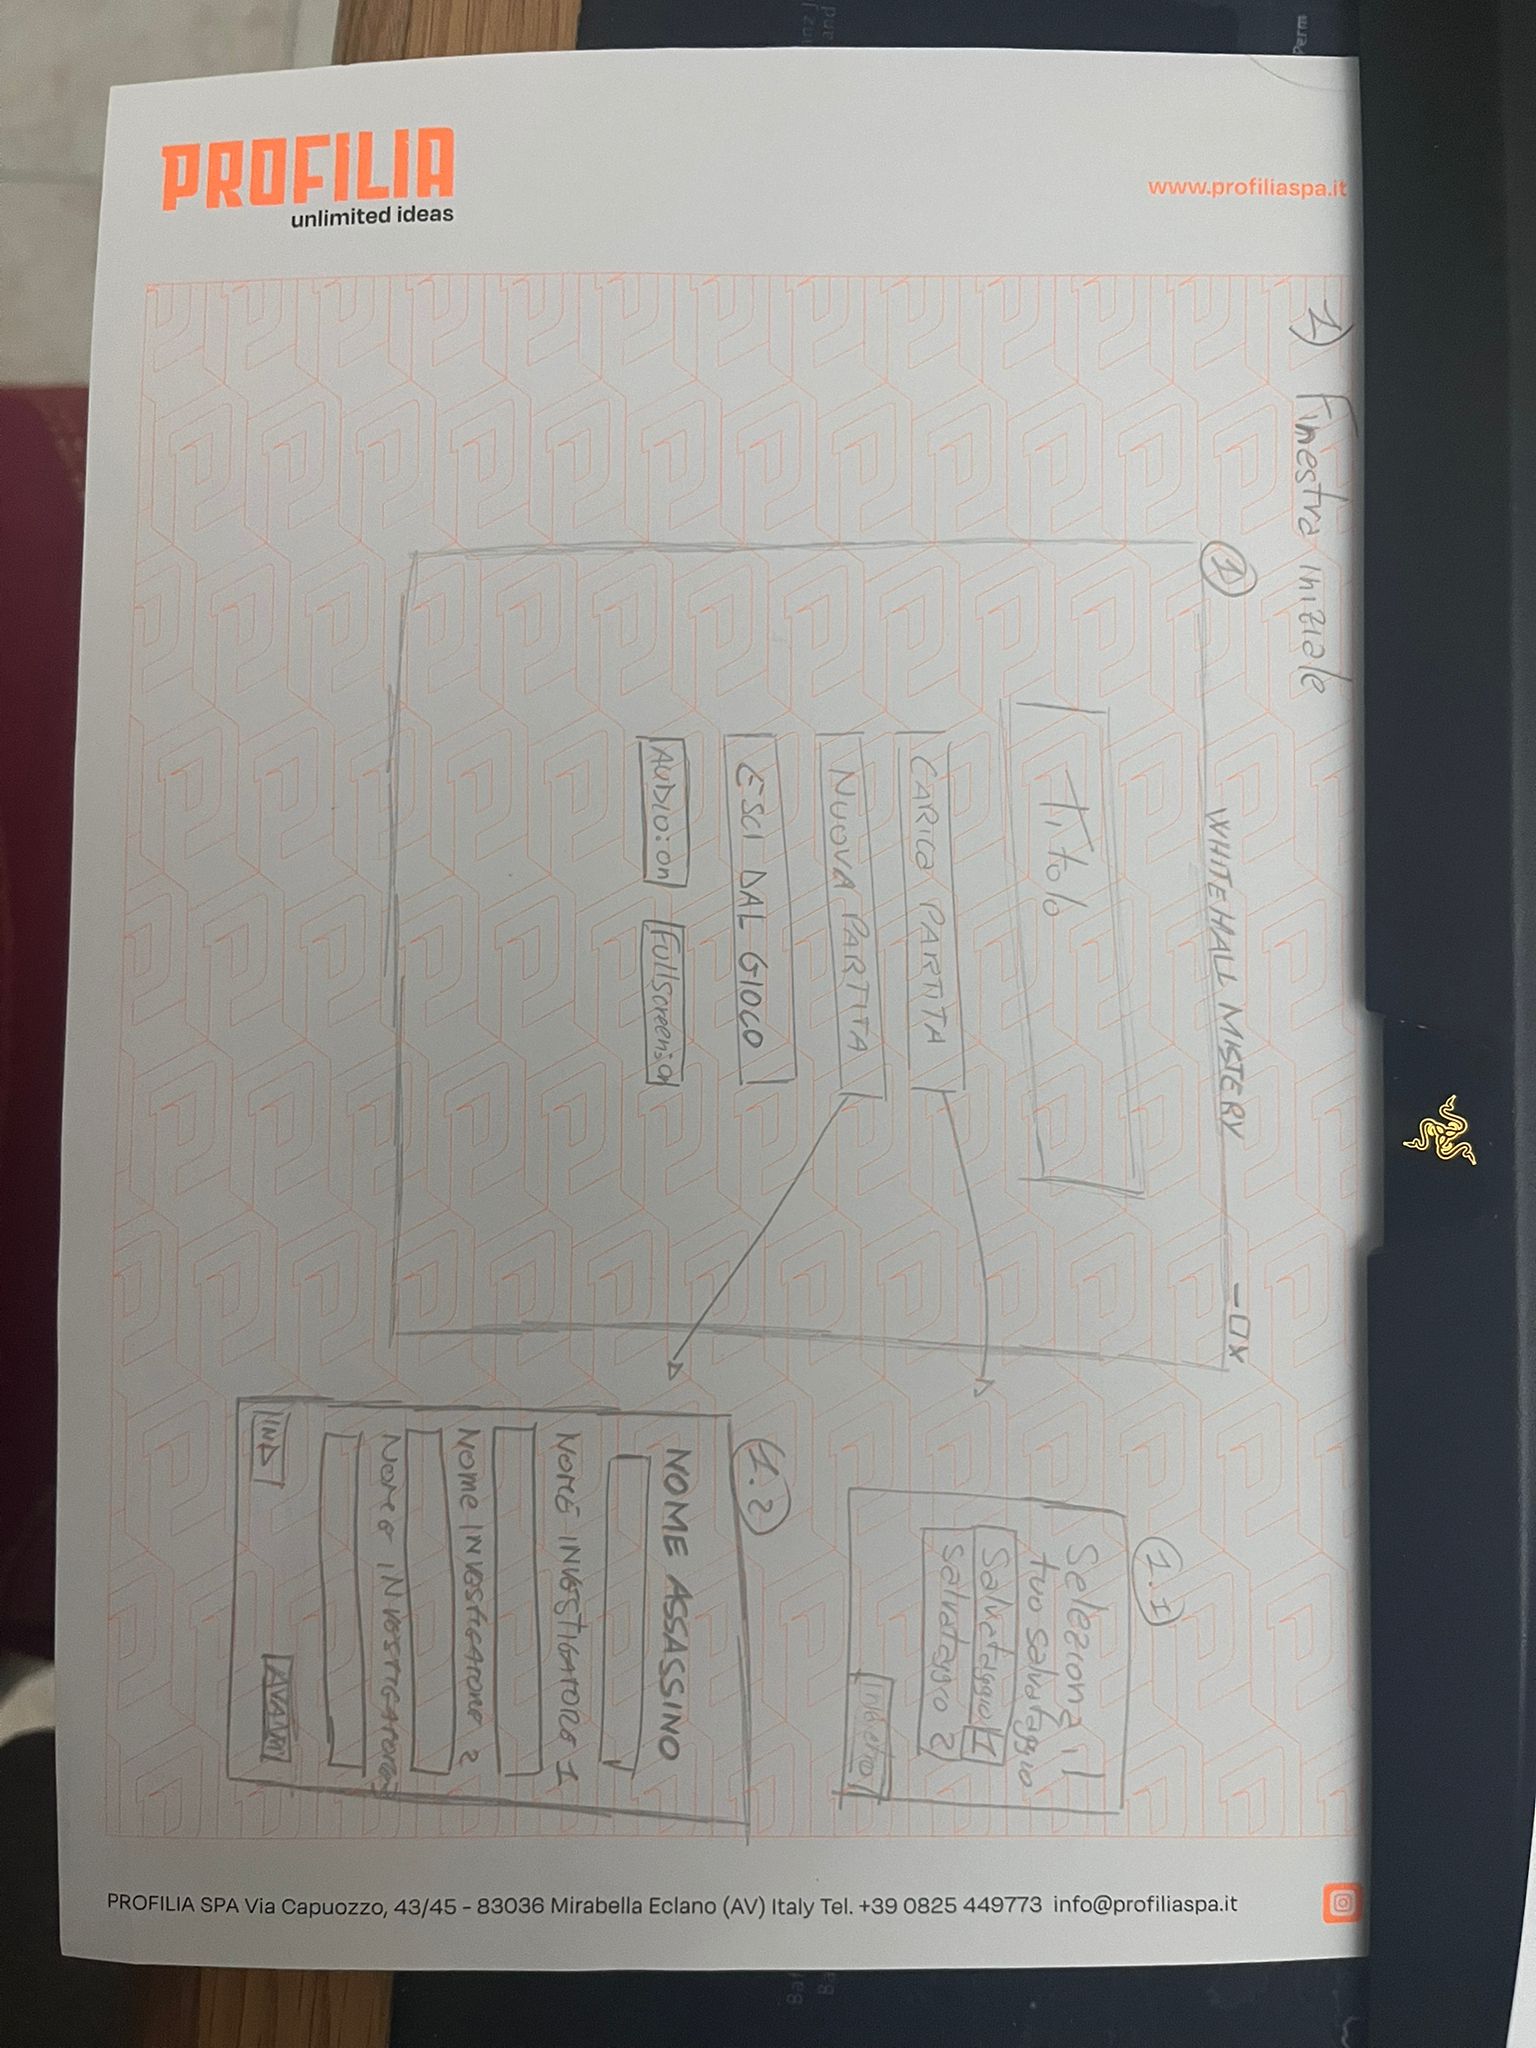 PROFILIA
unlimited ideas
www.profiliaspa.it
1) Finestra iniziale
1
WHITEHALL MISTERY
-□X
Titolo
CARICA PARTITA
NUOVA PARTITA
ESCI DAL GIOCO
AUDIO:on
Fullscreen:on
1.1
Seleziona il
tuo salvataggio
Salvataggio 1
salvataggio 2
Indietro
1.2
NOME ASSASSINO
NOME INVESTIGATORE 1
Nome INVESTIGATORE 2
Nome INVESTIGATORE 3
IND
AVANTI
PROFILIA SPA Via Capuozzo, 43/45 - 83036 Mirabella Eclano (AV) Italy Tel. +39 0825 449773 info@profiliaspa.it
Perm
and